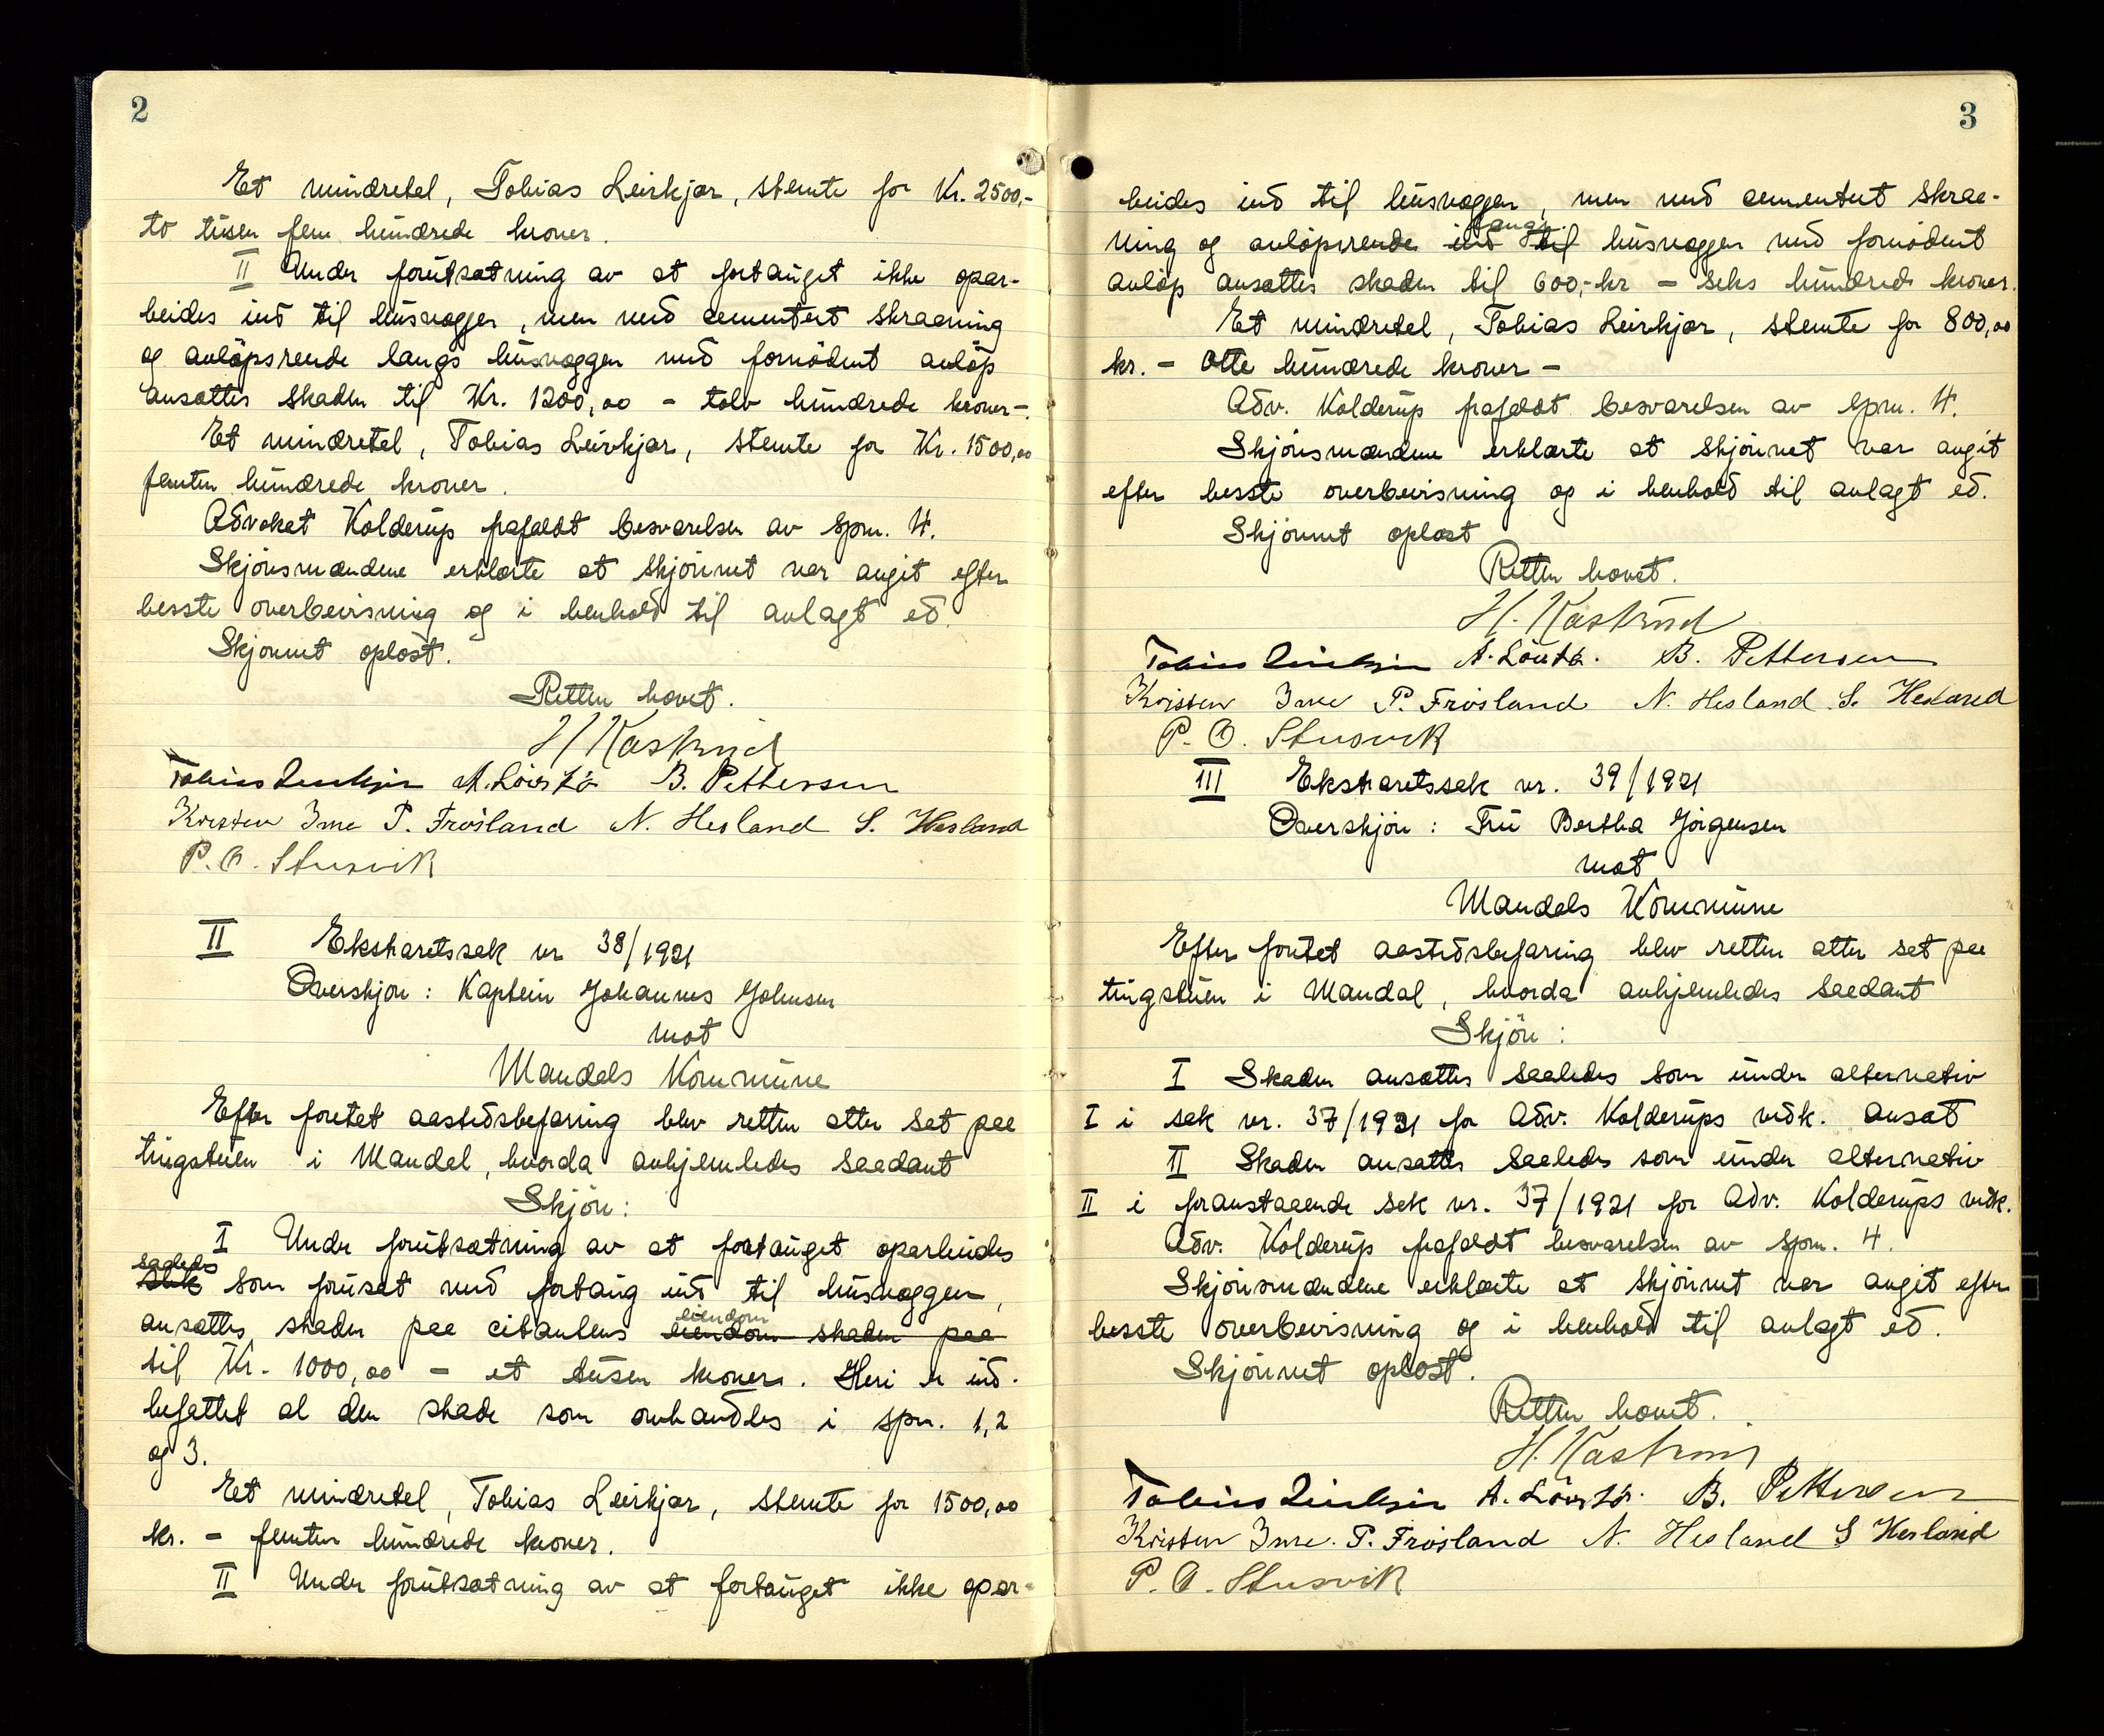 2
Et mindretel, Tobias Leirkjær, stemte for Kr. 2500,-
to tusen fem hundrede kroner.
II Under forutsætning av at fortauget ikke opar-
beides ind til husvæggen, men med cementert skraaning
og avløpsrende langs husvæggen med fornødent avløp
ansættes skaden til Kr. 1200,00 - tolv hundrede kroner-.
Et mindretel, Tobias Leirkjær, stemte for Kr. 1500,00
femten hundrede kroner.
Advokat Kolderup frafaldt besvarelsen av spm. 4.
Skjønsmændene erklærte at skjønnet var avgit efter
besste overbevisning og i henhold til avlagt ed.
Skjønnet opløst.
Retten hævet.
H Kastrud
Tobias Leirkjær A. Löv B. Pettersen
Kristen Ime P. Frøisland N. Hesland S. Hesland
P. O. Stusvik
II Ekstraretssak nr 38/1921
Overskjøn: Kaptein Johannes Johnsen
mot
Mandals Kommune
Efter foretet aastedsbefaring blev retten atter sat paa
tingstuen i Mandal, hvorda avhjemledes saadant
Skjøn:
I Under forutsætning av at fortauget oparbeides
saaledes
slik som forusat med fortaug ind til husvæggen,
eiendom
ansættes skaden paa citantens eiendom skaden paa
til Kr. 1000,00 - et tusen kroner. Heri er ind-
befattet al den skade som omhandles i spm. 1,2
og 3.
Et mindretel, Tobias Leirkjær, stemte for 1500,00
kr. - femten hundrede kroner.
II Under forutsætning av at fortauget ikke opar-
3
beides ind til husvæggen, men med cementert skraa-
langs
ning og avløpsrende ind til husvæggen med fornødent
avløp ansættes skaden til 600,- kr - seks hundrede kroner.
Et mindretel, Tobias Leirkjær, stemte for 800,00
kr. - otte hundrede kroner -
Adv. Kolderup frafaldt besvarelsen av spm. 4.
Skjønsmændene erklærte at skjønnet var avgit
efter besste overbevisning og i henhold til avlagt ed.
Skjønnet opløst
Retten hævet.
H. Kastrud
Tobias Leirkjær A. Löv B. Pettersen
Kristen Ime P. Frøisland N. Hesland S. Hesland
P. O. Stusvik
III Ekstraretssak nr. 39/1921
Overskjøn: Fru Bertha Jørgensen
mot
Mandals Kommune
Efter foretet aastedsbefaring blev retten atter sat paa
tingstuen i Mandal, hvorda avhjemledes saadant
Skjøn:
I Skaden ansættes saaledes som under alternativ
I i sak nr. 37/1921 for Adv. Kolderups vedk. ansat
II Skaden ansættes saaledes som under alternativ
II i foranstaaende sak nr. 37/1921 for Adv. Kolderups vedk.
Adv. Kolderup frafaldt besvarelsen av spm. 4.
Skjønsmændene erklærte at skjønnet var avgit efter
besste overbevisning og i henhold til avlagt ed.
Skjønnet opløst.
Retten hævet.
H. Kastrud
Tobias Leirkjær A. Löv B. Pettersen
Kristen Ime. P. Frøisland N. Hesland S Hesland
P. O. Stusvik